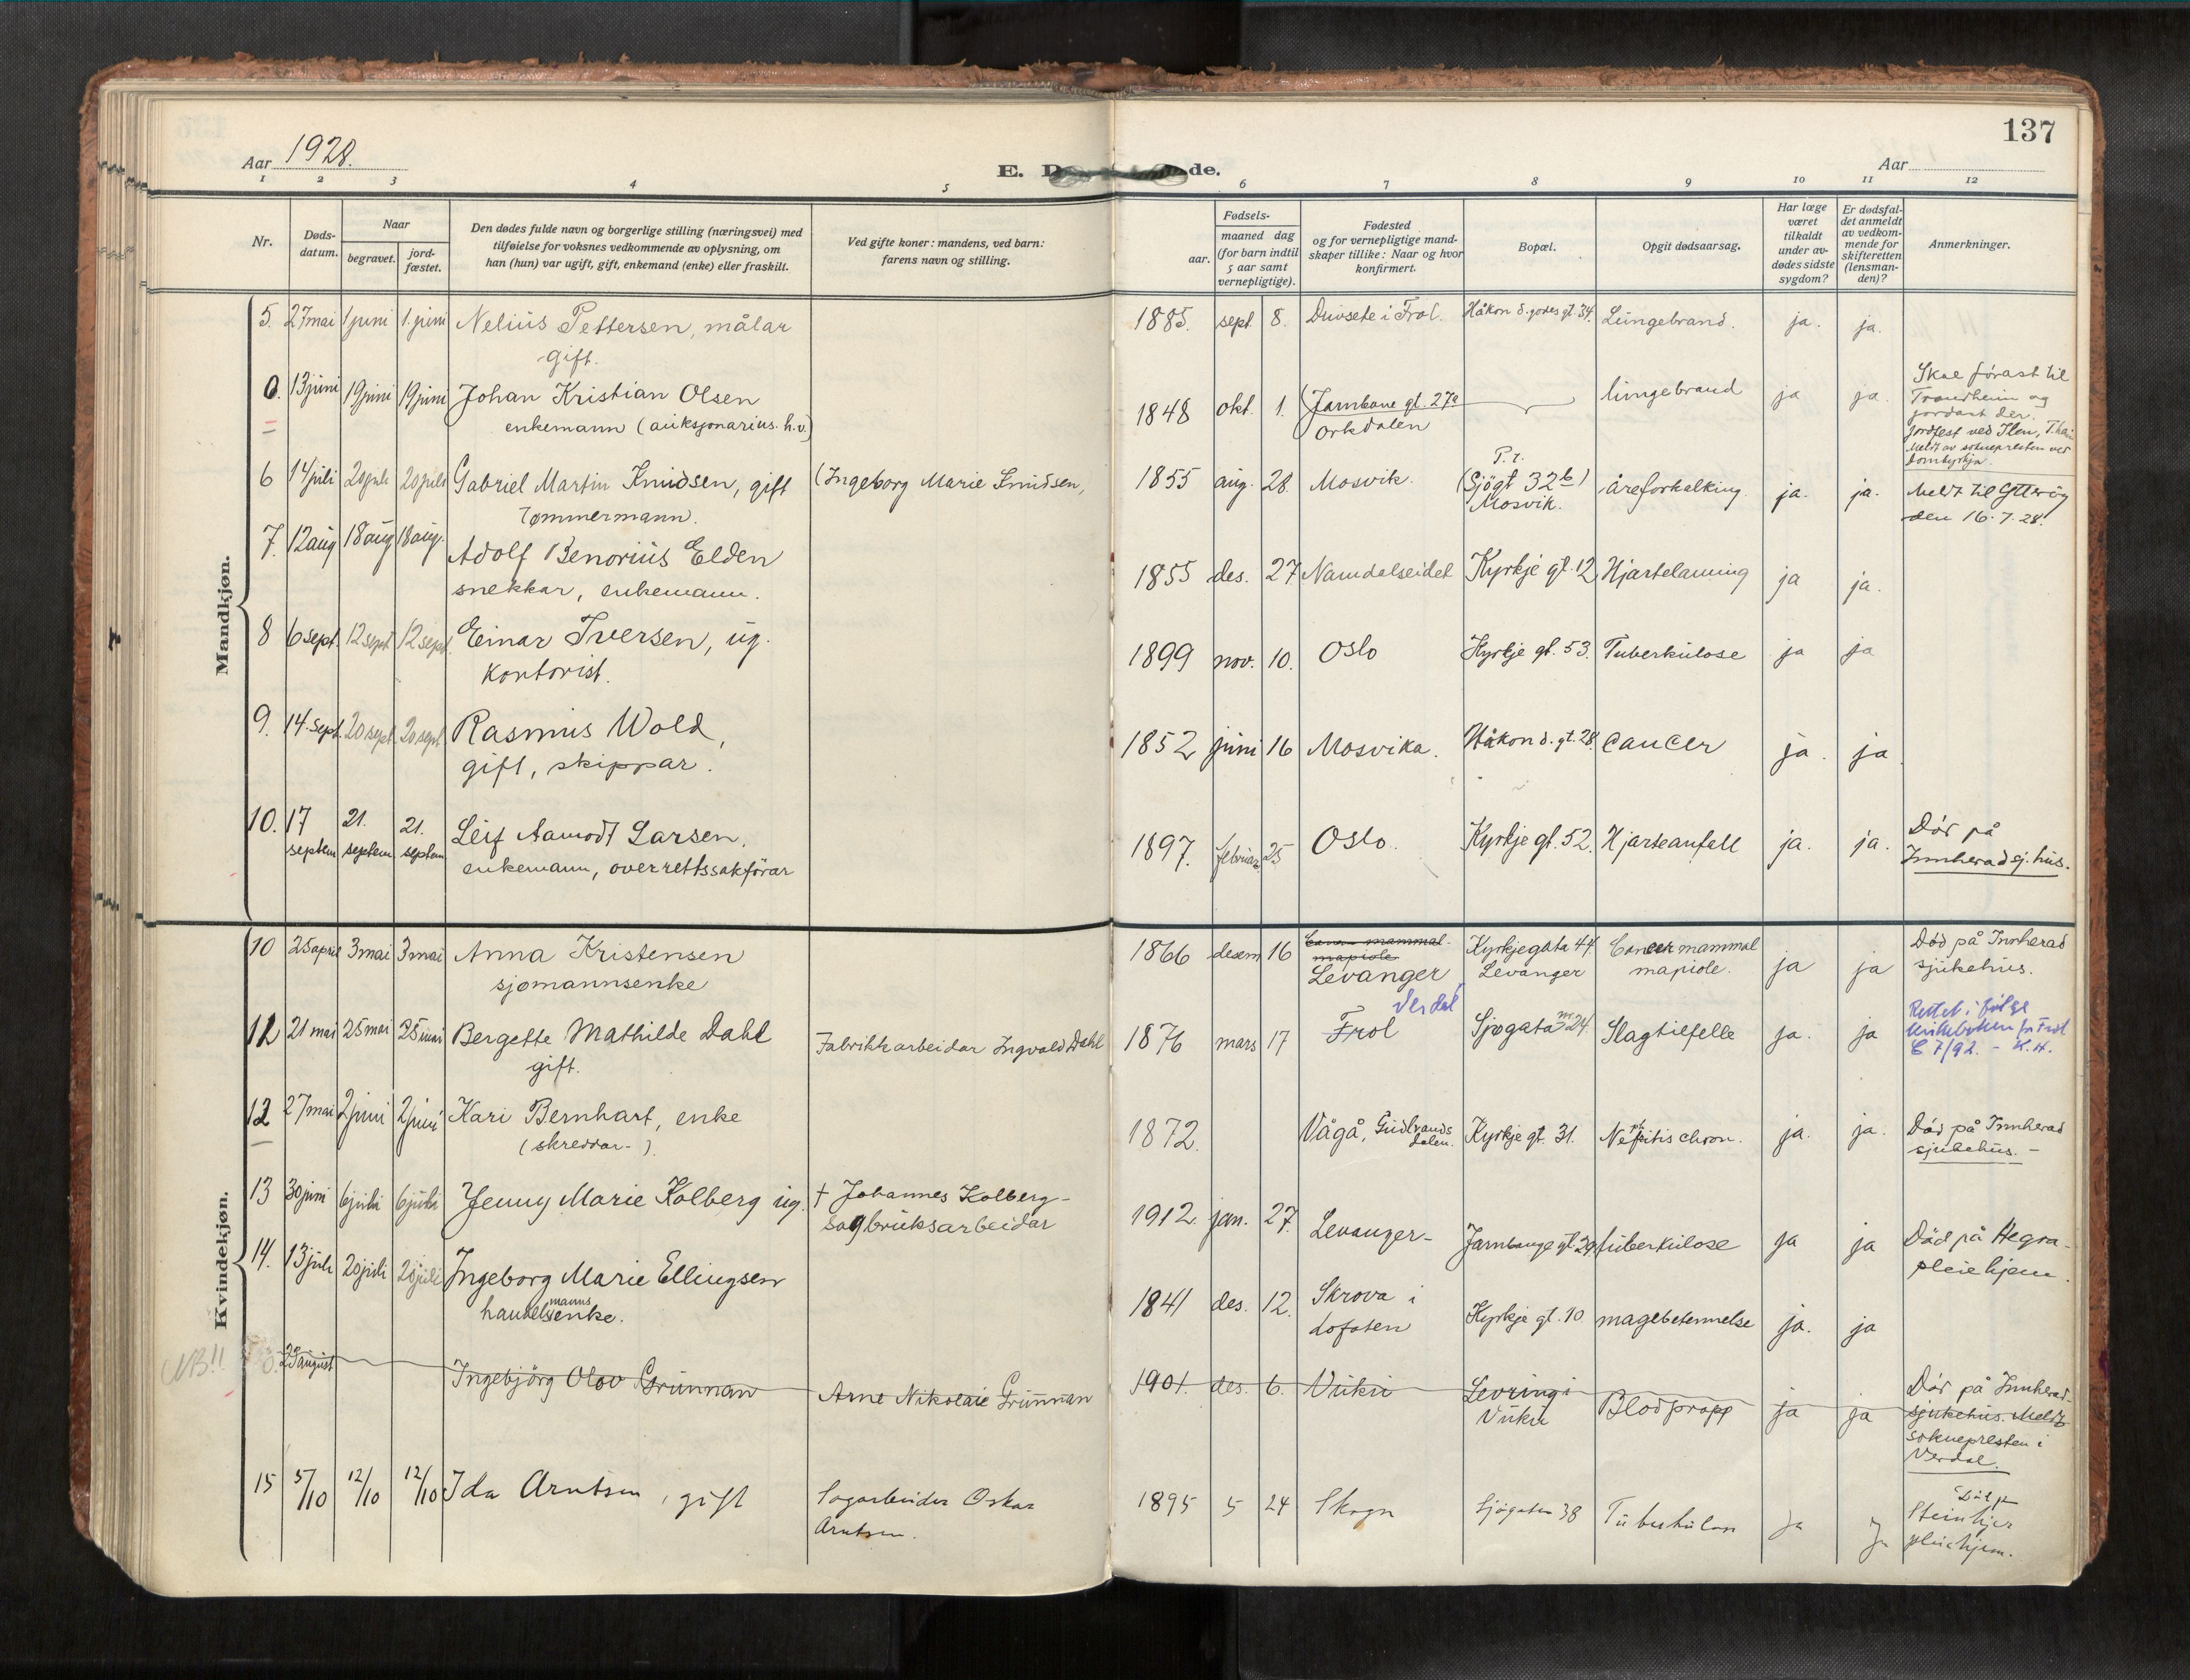 137
Aar 1928.
E. D de.
Aar
1 2 3 4 5 6 7 8 9 10 11 12
Nr.
Døds-
datum.
Naar
begravet.
jord-
fæstet.
Den dødes fulde navn og borgerlige stilling (næringsvei) med
tilføielse for voksnes vedkommende av oplysning, om
han (hun) var ugift, gift, enkemand (enke) eller fraskilt.
Ved gifte koner: mandens, ved barn:
farens navn og stilling.
Fødsels-
aar.
maaned dag
(for barn indtil
5 aar samt
vernepligtige).
Fødested
og for vernepligtige mand-
skaper tillike: Naar og hvor
konfirmert.
Bopæl.
Opgit dødsaarsag.
Har læge
været
tilkaldt
under av-
dødes sidste
sygdom?
Er dødsfal-
det anmeldt
av vedkom-
mende for
skifteretten
(lensman-
den)?
Anmerkninger.
Mandkjøn.
5. 27 mai 1 juni 1. juni Nelius Pettersen, målar
gift.
1885. sept. 8. i Frol. Håkon d. godes gt. 34. Lungebrand. ja. ja.
0. 13 juni 19 juni 19 juni Johan Kristian Olsen
enkemann (auksjonarius. h.v.)
1848 okt. 1. (Jarnbane gt. 27a
Orkdalen
lungebrand ja ja.
Skal førast til
Trondheim og
jordast der.
Jordfest ved Ilen, T.heim
Meldt av soknepresten ved
Domkyrkja.
6 14 juli 20 juli 20 juli Gabriel Martin Knudsen, gift
tømmermann.
(Ingeborg Marie Knudsen,
1855 aug. 28. Mosvik.
P. t.
(Sjøgt 32b)
Mosvik.
åreforkalking. ja. ja.
Meldt til Ytterøy
den 16.7.28.
7. 12 aug 18 aug 18 aug. Adolf Benorius Elden
snekkar, enkemann.
1855 des. 27 Namdalseidet Kyrkje gt. 12 Hjartelaming ja ja.
8 6 sept. 12 sept 12 sept. Einar Iversen, ug.
kontorist.
1899 nov. 10. Oslo Kyrkje gt. 53. Tuberkulose ja ja
9. 14. sept. 20 sept. 20 sept Rasmus Wold,
gift, skippar.
1852 juni 16 Mosvika. Håkon d. gt. 28. cancer ja. ja
10. 17 septem 21. septem. 21. septem Leif Aamodt Larsen.
enkemann, overrettssakförar
1897. februar 25 Oslo. Kyrkje gt. 52. Hjarteanfell ja. ja.
Död på
Innherad sj. hus.
Kvindekjøn.
10 25 april 3 mai 3 mai Anna Kristensen
sjømannsenke
1866 desem 16 Levanger
Kyrkjegata 44.
Levanger
Cancer mammal
mapiole. ja ja
Död på Innherad
sjukehus.
12 21 mai 25 mai 25 mai Bergette Mathilde Dahl
gift.
Fabrikkarbeidar Ingvald Dahl
1876 mars 17 Frol
Verdal
Sjøgata nr 24. Slagtilfelle ja. ja
Rettet i følge
kirkeboken for Frol
E 7/92. - K.H.
12 27 mai 2 juni 2 juni Kari Bernhart, enke
(skreddar-).
1872. Vågå, Gudbrands
dalen. Kyrkje gt. 31. Nefritis chron. ja. ja.
Död på Innherad
sjukehus.-
13 30 juni 6 juli 6 juli Jenny Marie Kolberg ug.
† Johannes Kolberg-
sagbruksarbeidar
1912. jan. 27. Levanger- Jarnbane gt. 29 tuberkulose ja ja
Död på Hegra-
pleiehjem.
14. 13 juli 20 juli 20 juli Ingeborg Marie Ellingsen
handelsmannsenke.
1841 des. 12. Skrova i
Lofoten
Kyrkje gt. 10. magebetennelse ja. ja
NB!! 0. august
Ingebjörg Olov Grunnan
Arne Nikolaie Grunnan
1901. des. 6. Vuku
Levring i
Vuku
Blodpropp ja ja
Död på Innherad-
sjukehus. Meldt
soknepresten i
Verdal.
15 5/10 12/10 12/10 Ida Arntsen, gift
Sagarbeider Oskar
Arntsen.
1895 5 24 Skogn Sjögaten 38 Tuberkulose ja ja
Död på
Steinkjer
pleiehjem.